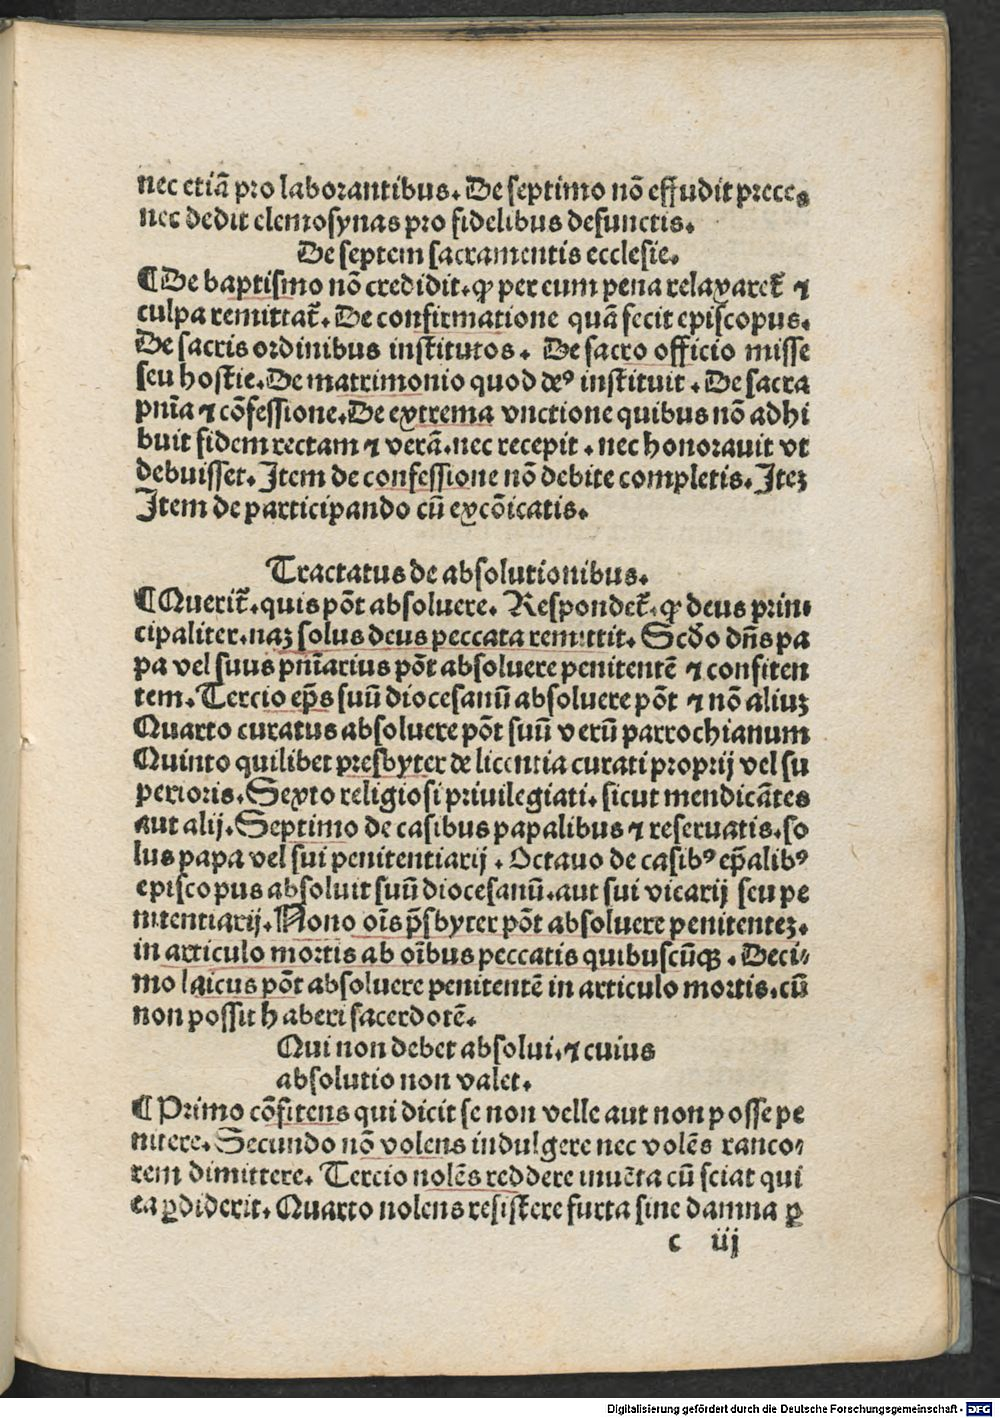 nec etiã pro laborantibus. De septimo nõ effudit preces
nec dedit elemosynas pro fidelibus defunctis.
De septem sacramentis ecclesie.
¶ De baptismo nõ credidit. ꝙ per eum pena relaxaret̃ ⁊
culpa remittat̃. De confirmatione quã fecit episcopus.
De sacris ordinibus institutos. De sacro officio misse
seu hostie. De matrimonio quod deꝰ instituit. De sacra
pnĩa ⁊ cõfessione. De extrema vnctione quibus nõ adhi
buit fidem rectam ⁊ verã. nec recepit. nec honorauit vt
debuisset. Item de confessione nõ debite completis. Itez
Item de participando cũ excõicatis.
Tractatus de absolutionibus.
¶ Querit̃. quis põt absoluere. Respondet̃. ꝙ deus prin-
cipaliter. naz solus deus peccata remittit. Scdo dñs pa
pa vel suus pnĩarius põt absoluere penitentẽ ⁊ confiten
tem. Tercio ep̃s suũ diocesanũ absoluere põt ⁊ nõ aliuz
Quarto curatus absoluere põt suũ verũ parrochianum
Quinto quilibet presbyter de licentia curati proprij vel su
perioris. Sexto religiosi priuilegiati. sicut mendicãtes
aut alij. Septimo de casibus papalibus ⁊ reseruatis. so
lus papa vel sui penitentiarij. Octauo de casibꝰ ep̃alibꝰ
episcopus absoluit suũ diocesanũ. aut sui vicarij seu pe
nitentiarij. Nono oĩs p̃sbyter põt absoluere penitentez.
in articulo mortis ab oĩbus peccatis quibuscũqꝫ. Deci-
mo laicus põt absoluere penitentẽ in articulo mortis. cũ
non possit haberi sacerdotẽ.
Qui non debet absolui. ⁊ cuius
absolutio non valet.
¶ Primo cõfitens qui dicit se non velle aut non posse pe
nitere. Secundo nõ volens indulgere nec volẽs ranco-
rem dimittere. Tercio nolẽs reddere inuẽta cũ sciat qui
ea ꝑdiderit. Quarto nolens resistere furta sine damna ꝑ
c iij
Digitalisierung gefördert durch die Deutsche Forschungsgemeinschaft - DFG